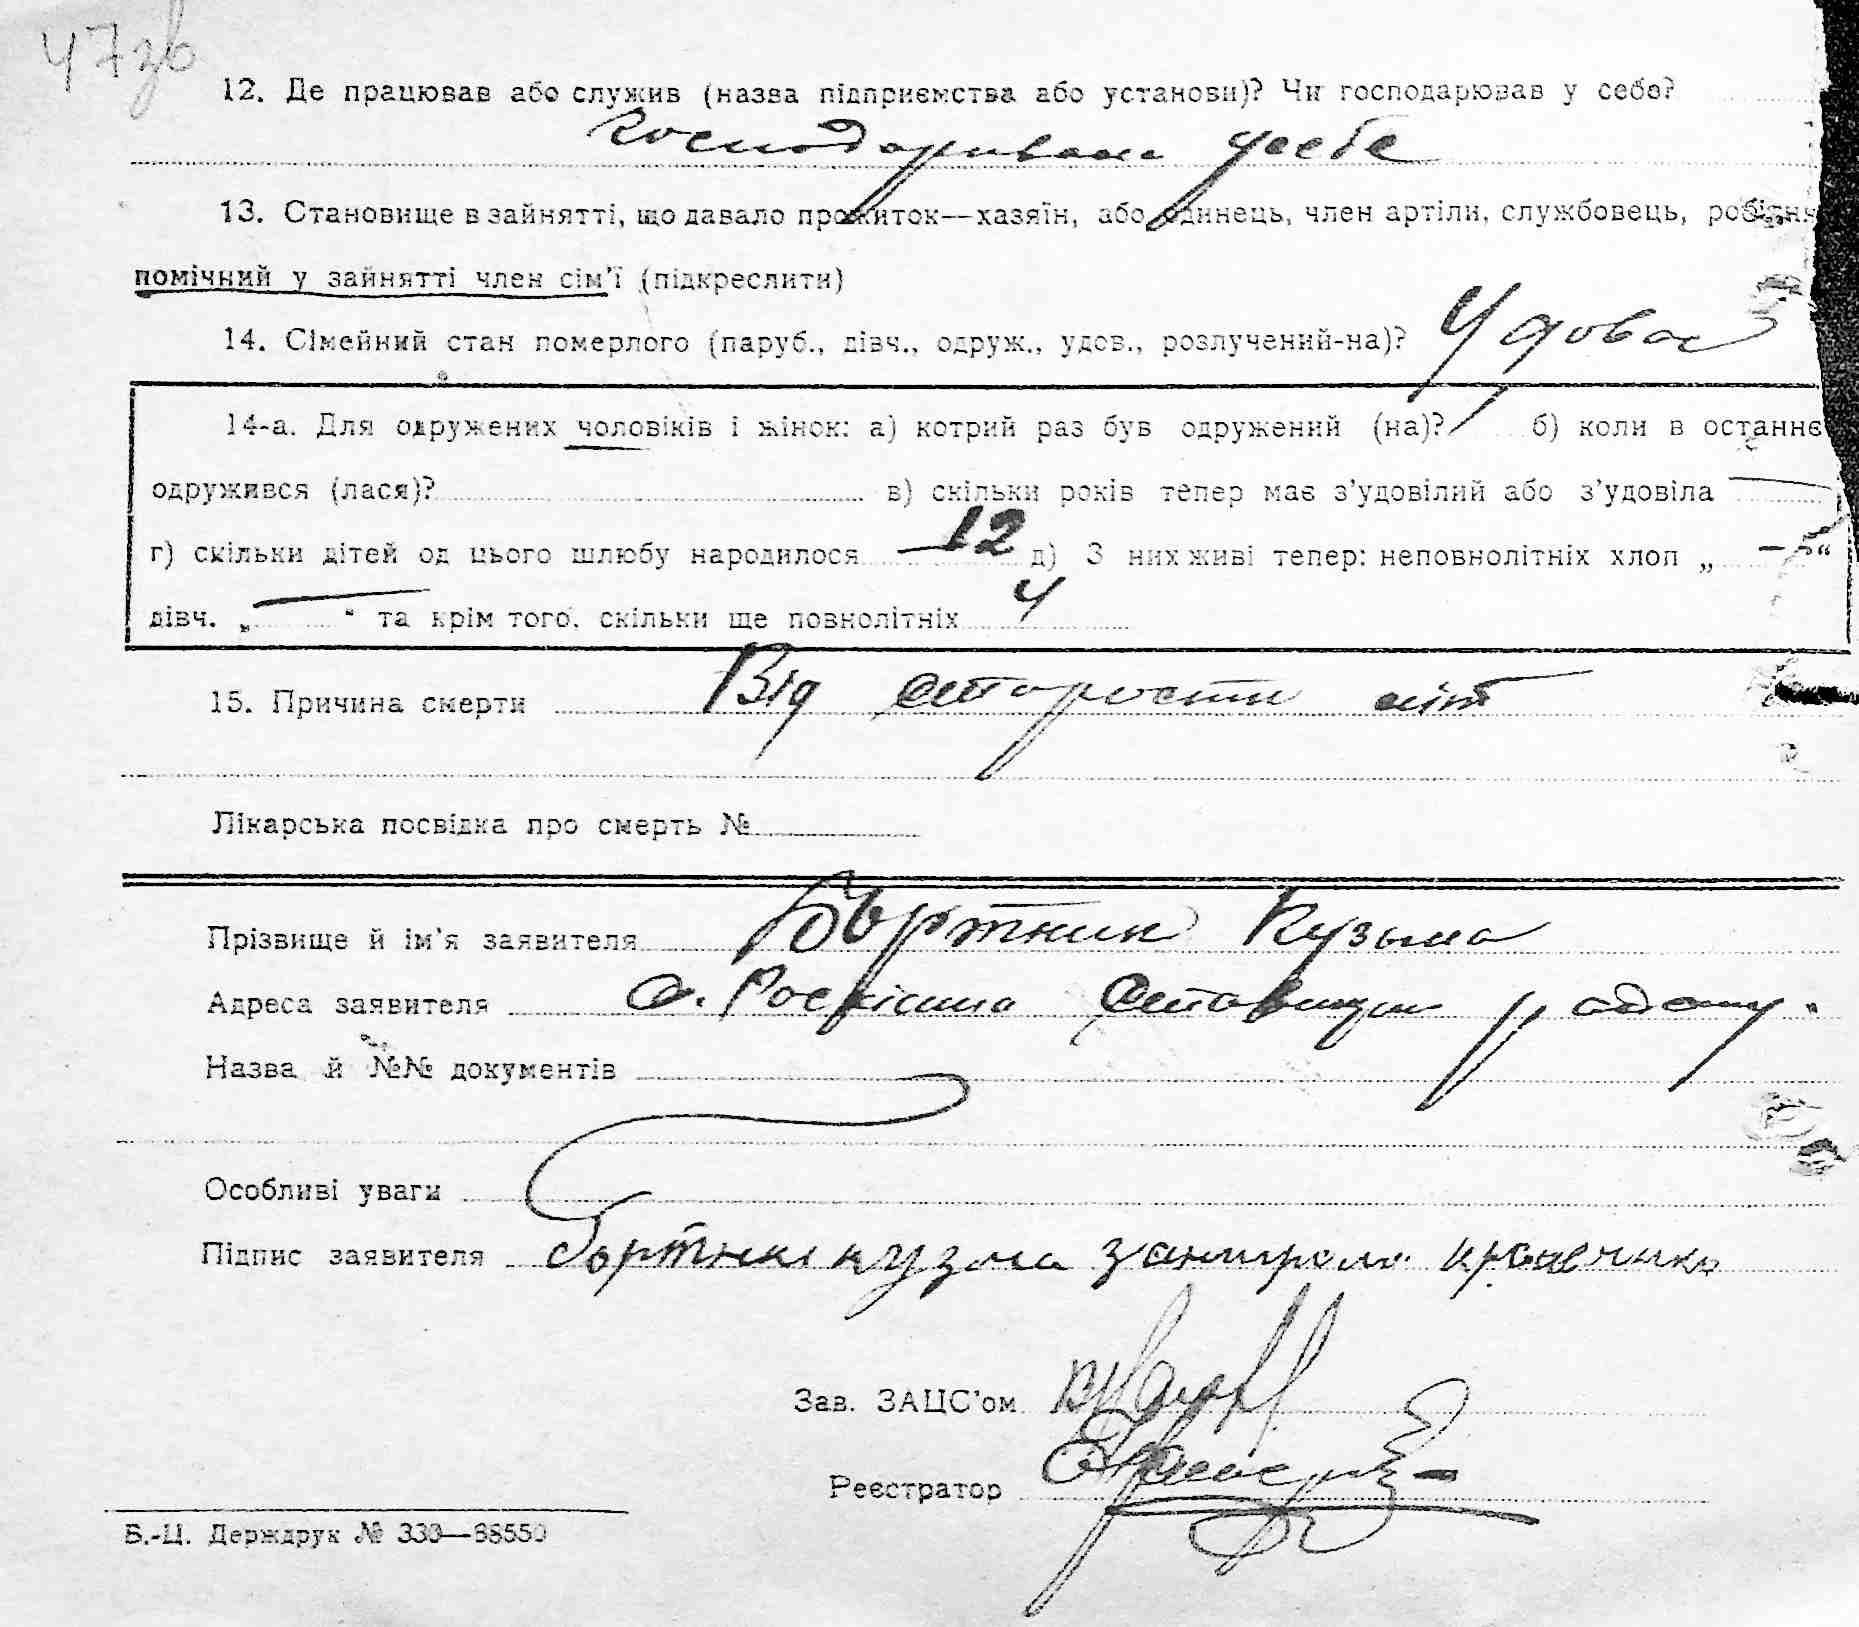 47зв
12. Де працював або служив (назва підприємства або установи)? Чи господарював у себе?
господарювала у себе
13. Становище в зайнятті, що давало прожиток—хазяїн, або одинець, член артіли, службовець, робітни
помічний у зайнятті член сім'ї (підкреслити)
14. Сімейний стан померлого (паруб., дівч., одруж., удов., розлучений-на)? Удова
14-а. Для одружених чоловіків і жінок: а) котрий раз був одружений (на)? 1 б) коли в останнє
одружився (лася)? в) скільки років тепер має з'удовілий або з'удовіла —
г) скільки дітей од цього шлюбу народилося 12 д) З них живі тепер: неповнолітніх хлоп „ — “
дівч. „ — “ та крім того, скільки ще повнолітніх 4
15. Причина смерти Від старости літ
Лікарська посвідка про смерть №
Прізвище й ім'я заявителя Бортник Кузьма
Адреса заявителя с. Ставищан району.
Назва й №№ документів
Особливі уваги
Підпис заявителя Бортник кузма
Зав. ЗАЦС'ом
Реєстратор
Б.-Ц. Держдрук № 330—88550